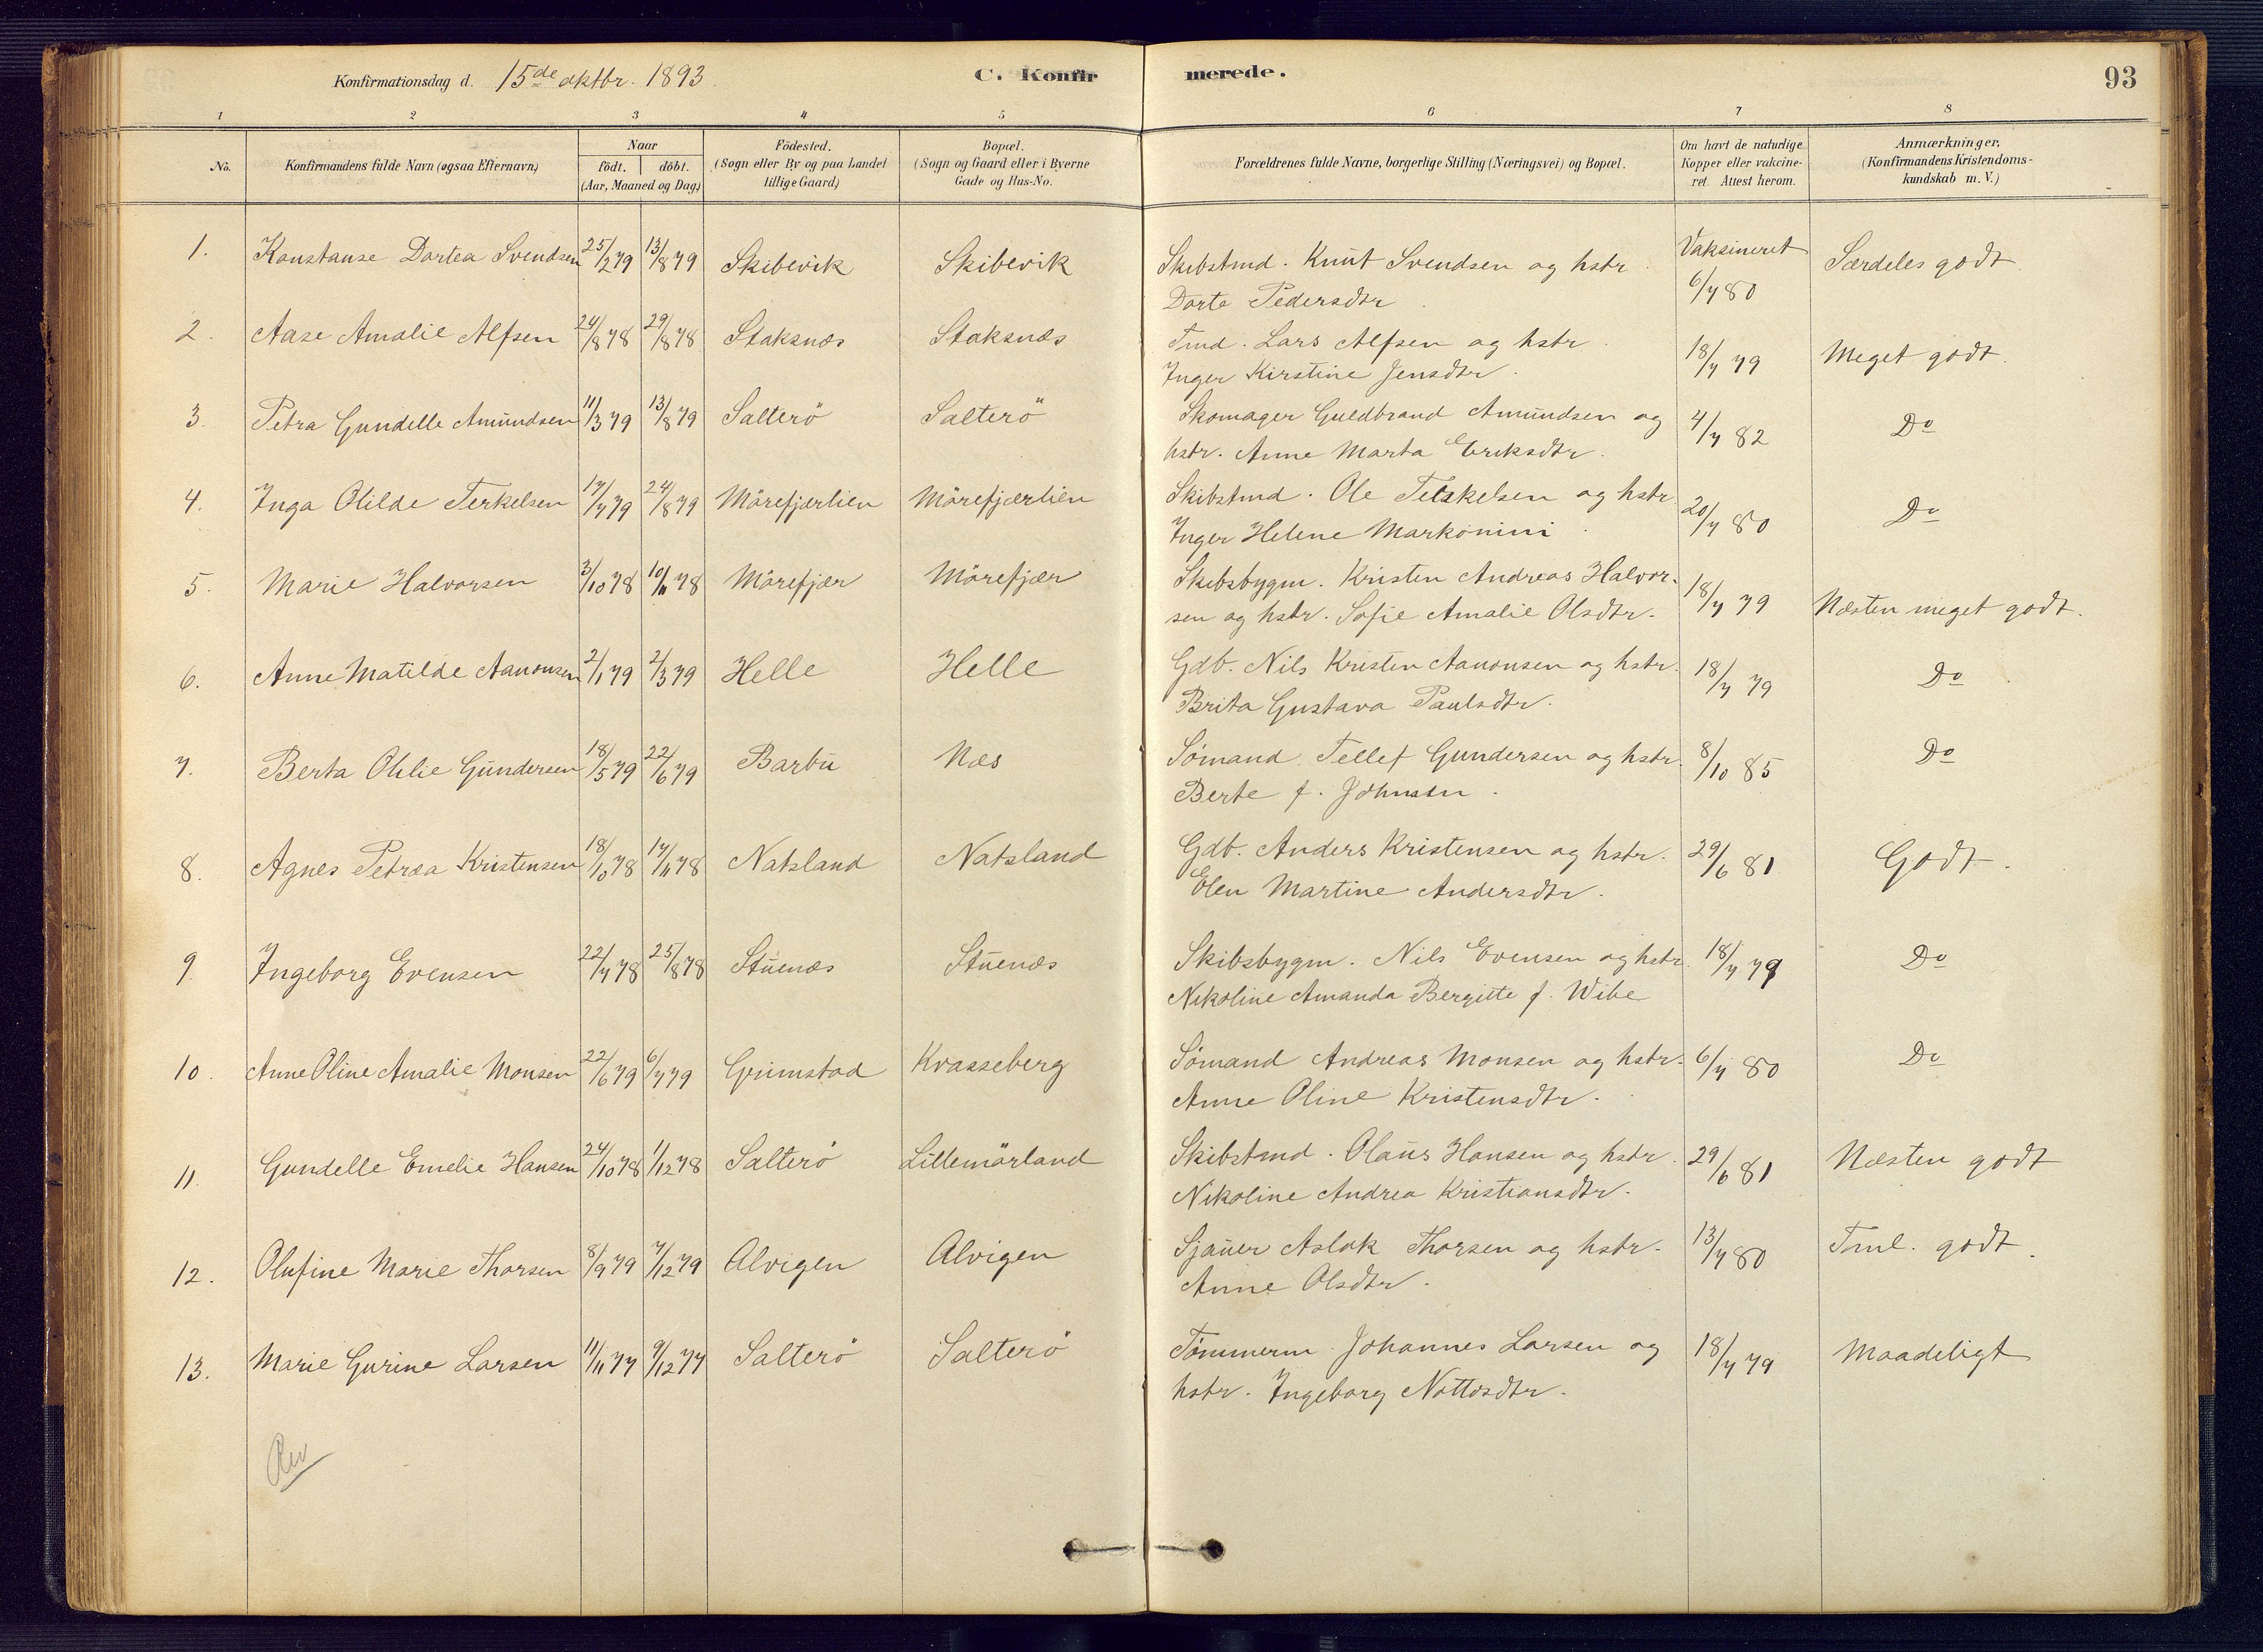 Konfirmationsdag d. 15de oktbr. 1893. C. Konfirmerede. 93
1 2 3 4 5 6 7 8
No. Konfirmandens fulde Navn (ogsaa Efternavn) Naar födt. döbt. (Aar, Maaned og Dag) Födested. (Sogn eller By og paa Landet tillige Gaard) Bopæl. (Sogn og Gaard eller i Byerne Gade og Hus-No. Forældrenes fulde Navne, borgerlige Stilling (Næringsvei) og Bopæl. Om havt de naturlige Kopper eller vakcineret. Attest herom. Anmærkninger. (Konfirmandens Kristendomskundskab m. V.)
1. Konstanse Dortea Svendsen 25/2 79 13/8 79 Skibevik Skibevik Skibstmd. Knut Svendsen og hstr. Vaksineret 6/7 80 Særdeles godt
Dorte Pedersdtr.
2. Aase Amalie Alfsen 24/8 78 29/8 78 Staksnæs Staksnæs Tmd. Lars Alfsen og hstr. 18/7 79 Meget godt.
Inger Kirstine Jensdtr.
3. Petra Gundelle Amundsen 11/3 79 13/8 79 Salterö Salterö Skomager Guldbrand Amundsen og 4/7 82 Do
hstr. Anne Marta Eriksdtr.
4. Inga Otilde Terkelsen 17/7 79 24/8 79 Mörefjærlien Mörefjærlien Skibstmd. Ole Terkelsen og hstr. 20/7 80 Do
Inger Helene Markonini
5. Marie Halvorsen 3/10 78 10/11 78 Mörefjær Mörefjær Skibsbygm. Kristen Andreas Halvor- 18/7 79 Næsten meget godt.
sen og hstr. Sofie Amalie Olsdtr.
6. Anne Matilde Aanonsen 2/1 79 2/3 79 Helle Helle Gdb. Nils Kristen Aanonsen og hstr. 18/7 79 Do
Brita Gustava Paulsdtr.
7. Berta Gundersen 18/5 79 22/6 79 Barbu Næs Sømand Tellef Gundersen og hstr. 8/10 85 Do
Berte f. Johnsen.
8. Agnes Petræa Kristensen 18/10 78 17/11 78 Natsland Natsland Gdb. Anders Kristensen og hstr. 29/6 81 Godt.
Elen Martine Andersdtr.
9. Ingeborg Evensen 22/7 78 25/8 78 Stuenæs Stuenæs Skibsbygm. Nils Evensen og hstr. 18/7 79 Do
Nikoline Amanda Bergitte f. Wibe
10. Anne Oline Amalie Monsen 22/6 79 6/7 79 Grimstad Kvasseberg Sømand Andreas Monsen og hstr. 6/7 80 Do
Anne Oline Kristensdtr.
11. Gundelle Emelie Hansen 24/10 78 1/12 78 Salterö Lillemörland Skibstmd. Olaus Hansen og hstr. 29/6 81 Næsten godt
Nikoline Andrea Kristiansdtr.
12. Olufine Marie Thorsen 8/9 79 7/12 79 Alvigen Alvigen Sjauer Aslak Thorsen og hstr. 13/7 80 Tml. godt.
Anne Olsdtr.
13. Marie Gurine Larsen 11/11 77 9/12 77 Salterö Salterö Tømmerm. Johannes Larsen og 18/7 79 Maadeligt
hstr. Ingeborg Nottosdtr.